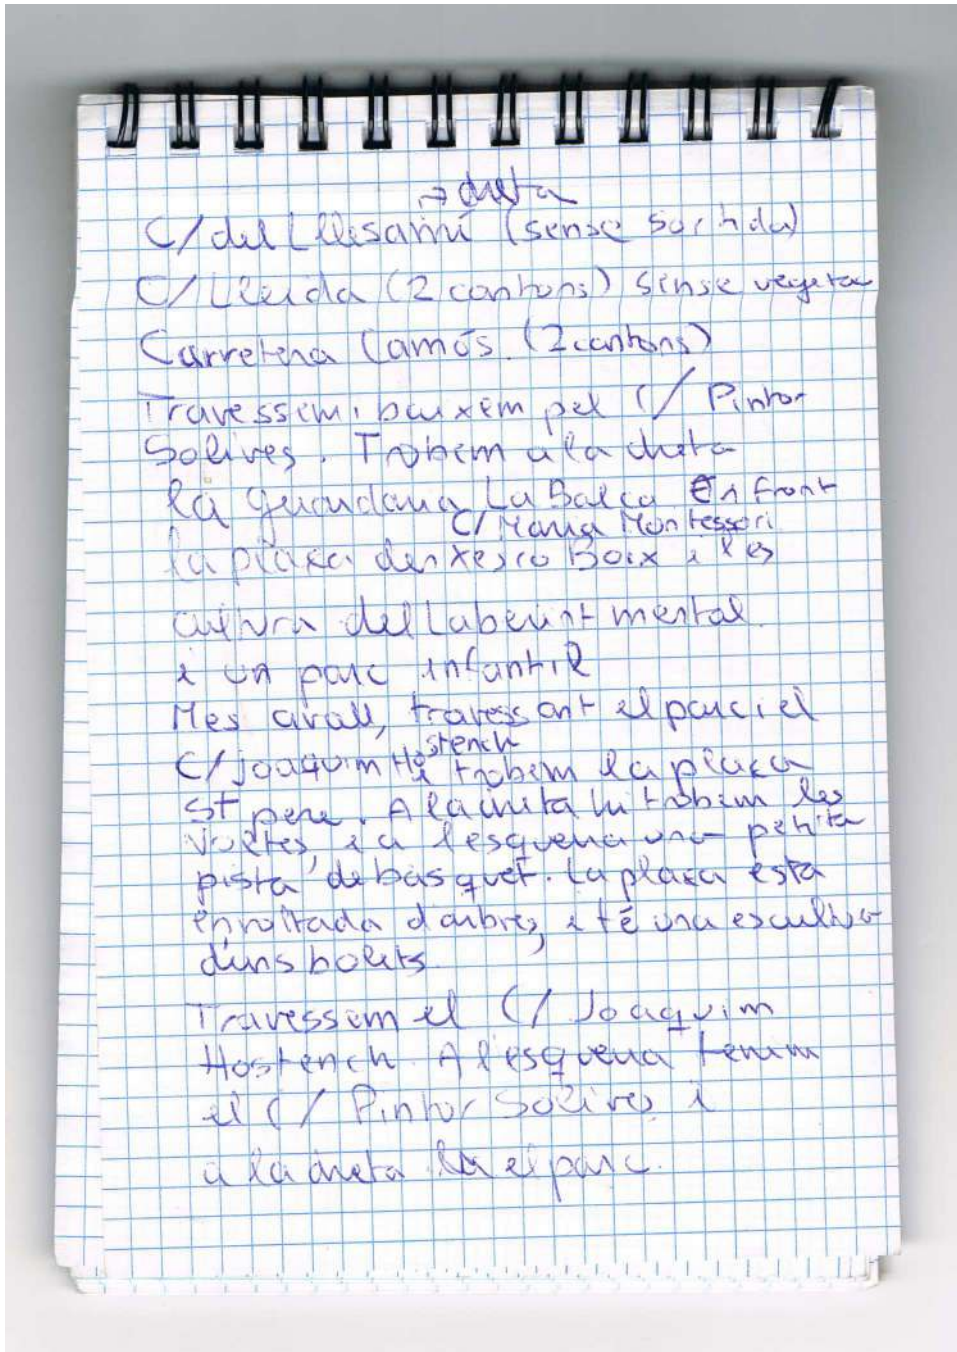 → dreta
C/ del Llessamí (sense sortida)
C/ Lleida (2 cantons) sense vegeta
Carretera Camós. (2 cantons)
Travessem i baixem pel C/ Pintor
Solives. Trobem a la dreta
la guardaria La Balca. En front
C/ Maria Montessori
la plaça den Xesco Boix i l'es
cultura del Laberint mental
i un parc infantil
Mes avall, travessant el parc i el
C/ Joaquim Hostench
i trobem la plaça
St pere. A la dreta hi trobem les
voltes, i a l'esquerra una petita
pista de bàsquet. La plaça està
enroltada d'arbres, i té una escultura
d'uns bolets.
Travessem el C/ Joaquim
Hostench. A l'esquerra tenim
el C/ Pintor Solives i
a la dreta el parc.